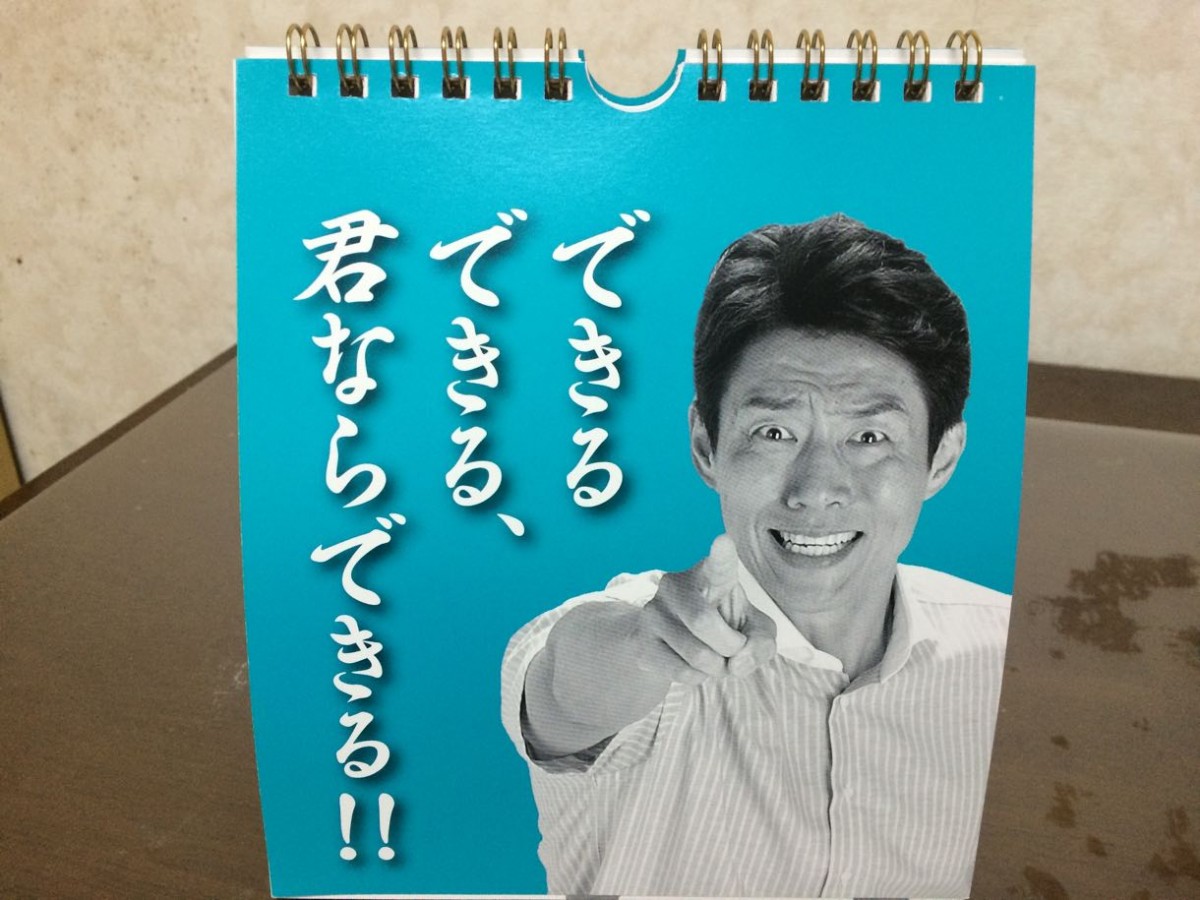 できる
できる、
君ならできる!!